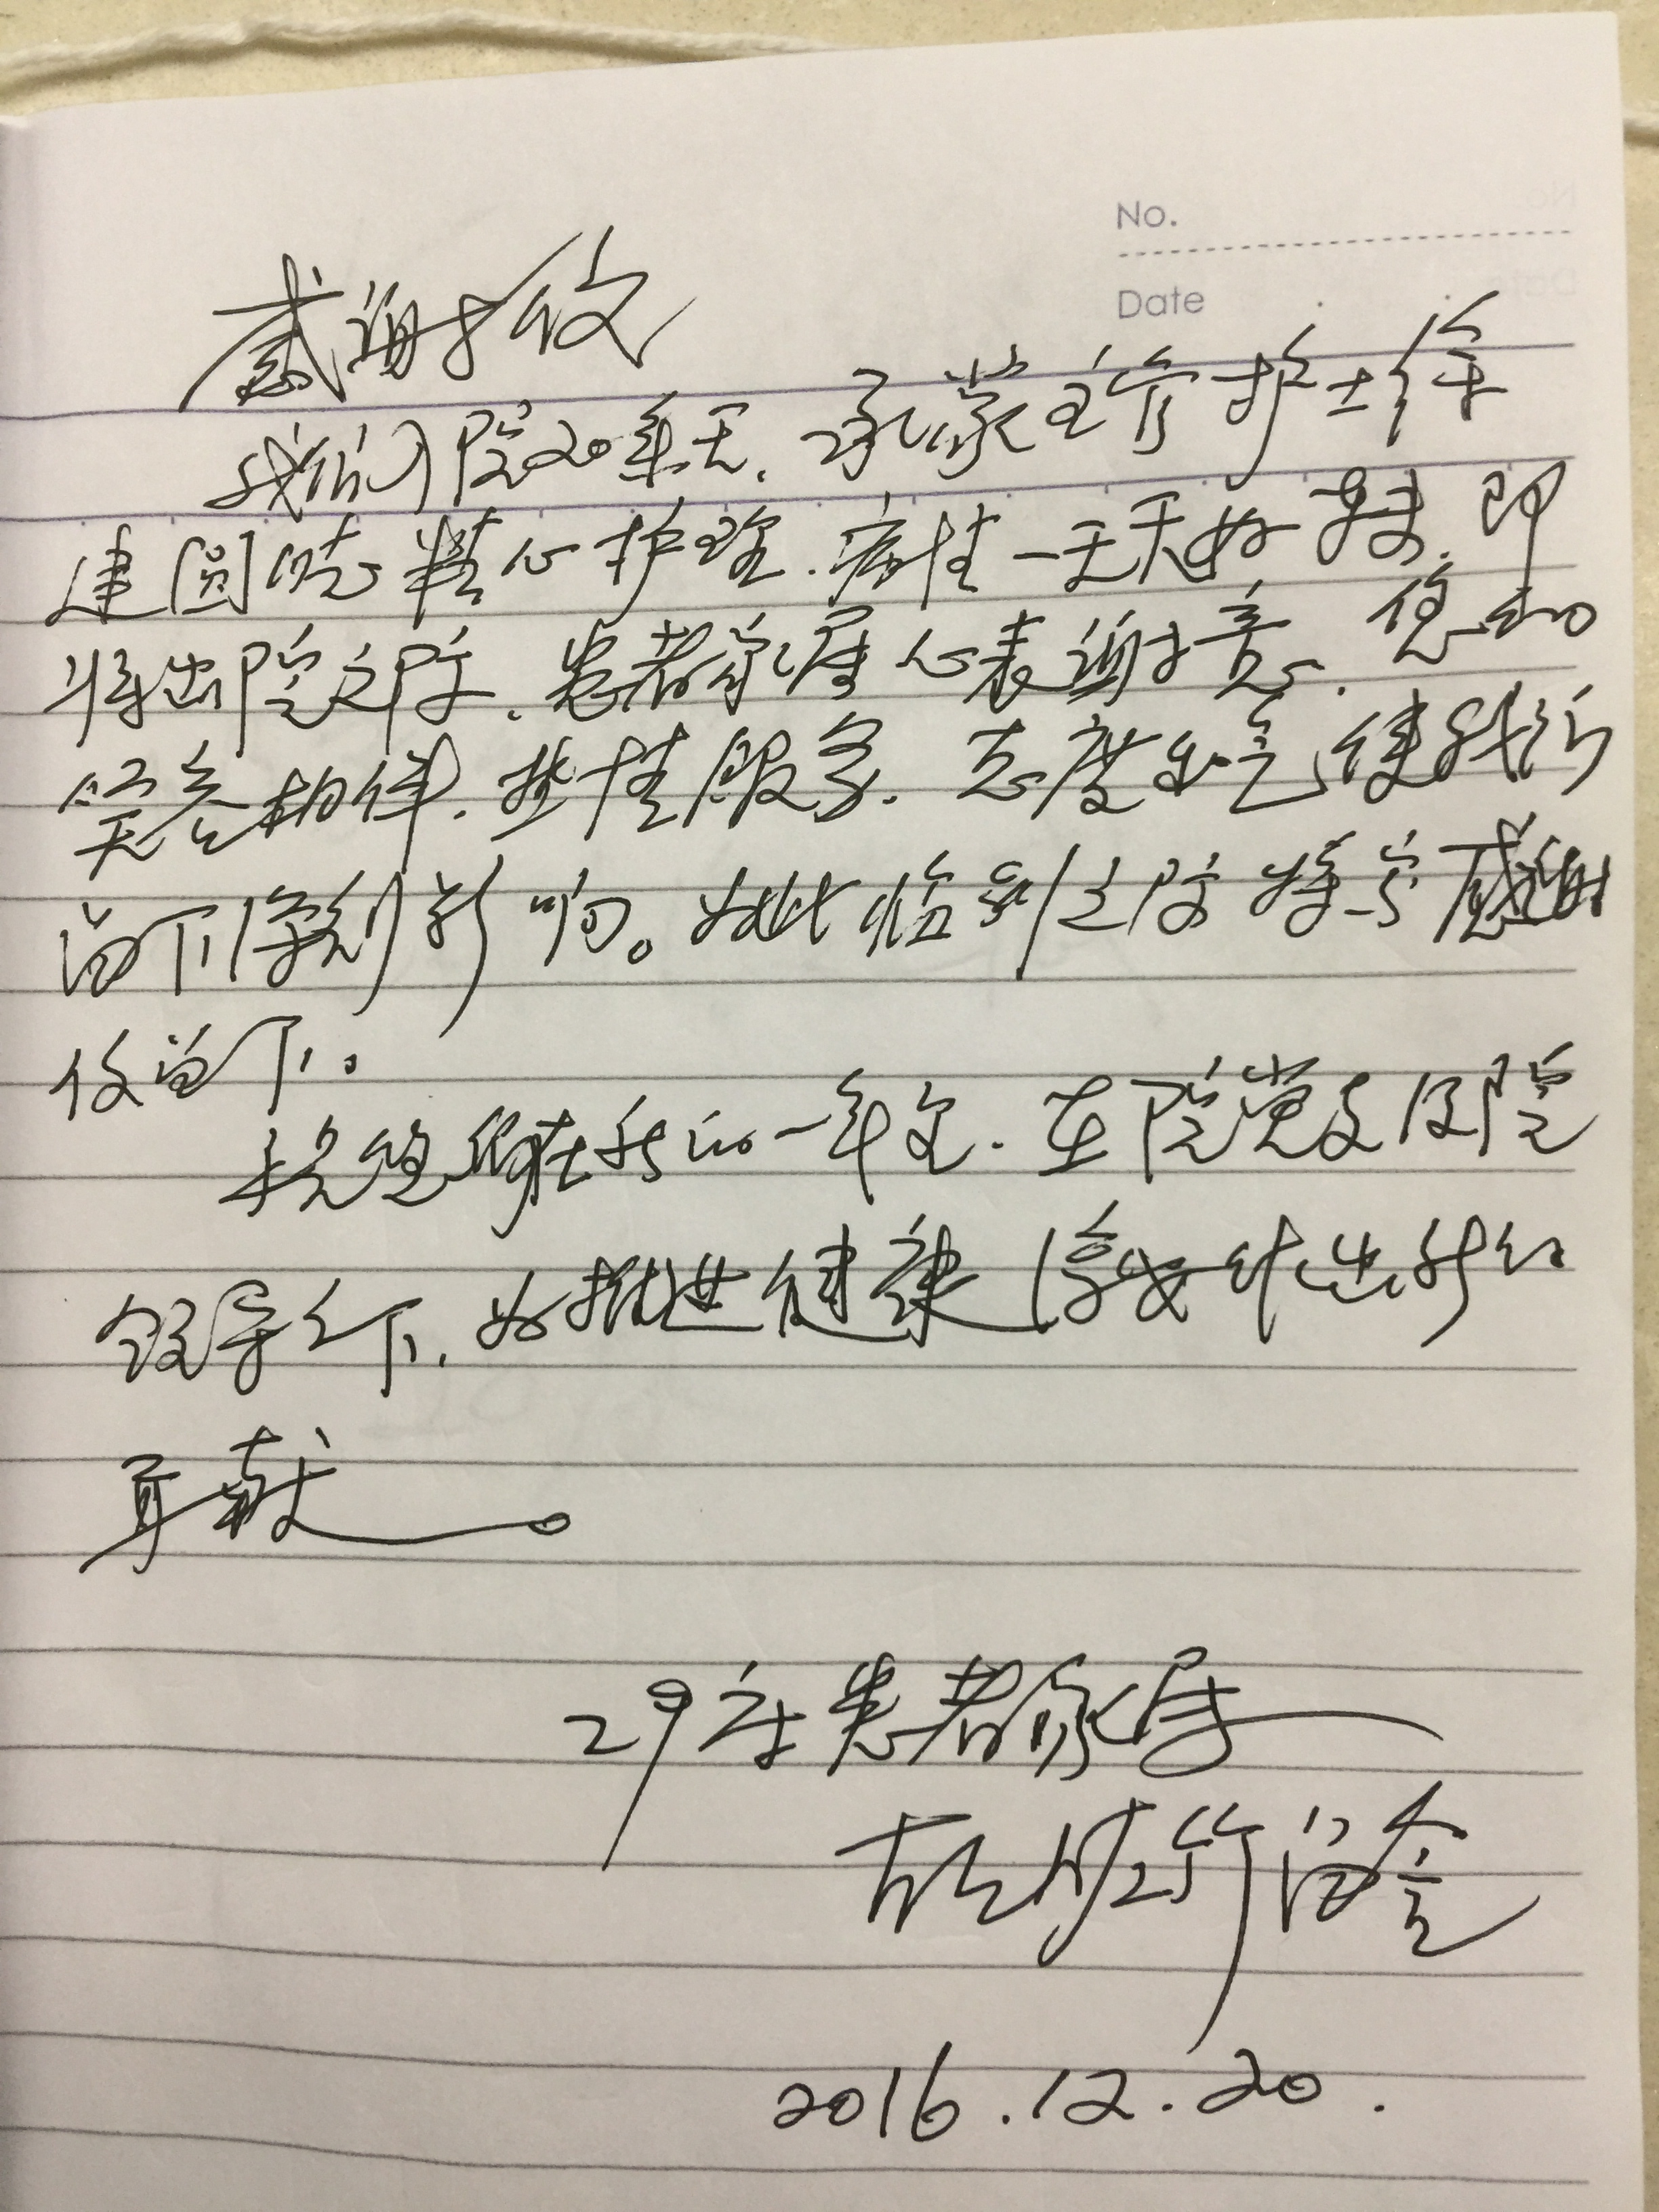 No.
Date
感谢收
我们入院20余天，承蒙主管护士徐
建圆的精心护理，病情一天天好转，即
将出院之际，患者家属心表谢意，您的
笑容相伴，热情服务，态度和气使我们
留下深刻影响。如此临别之际特写感谢
收留下。
祝您们在新的一年里，在院党支及院
领导之下，如推进健康 做出新的
贡献。
29床患者家属
留言
2016.12.20.